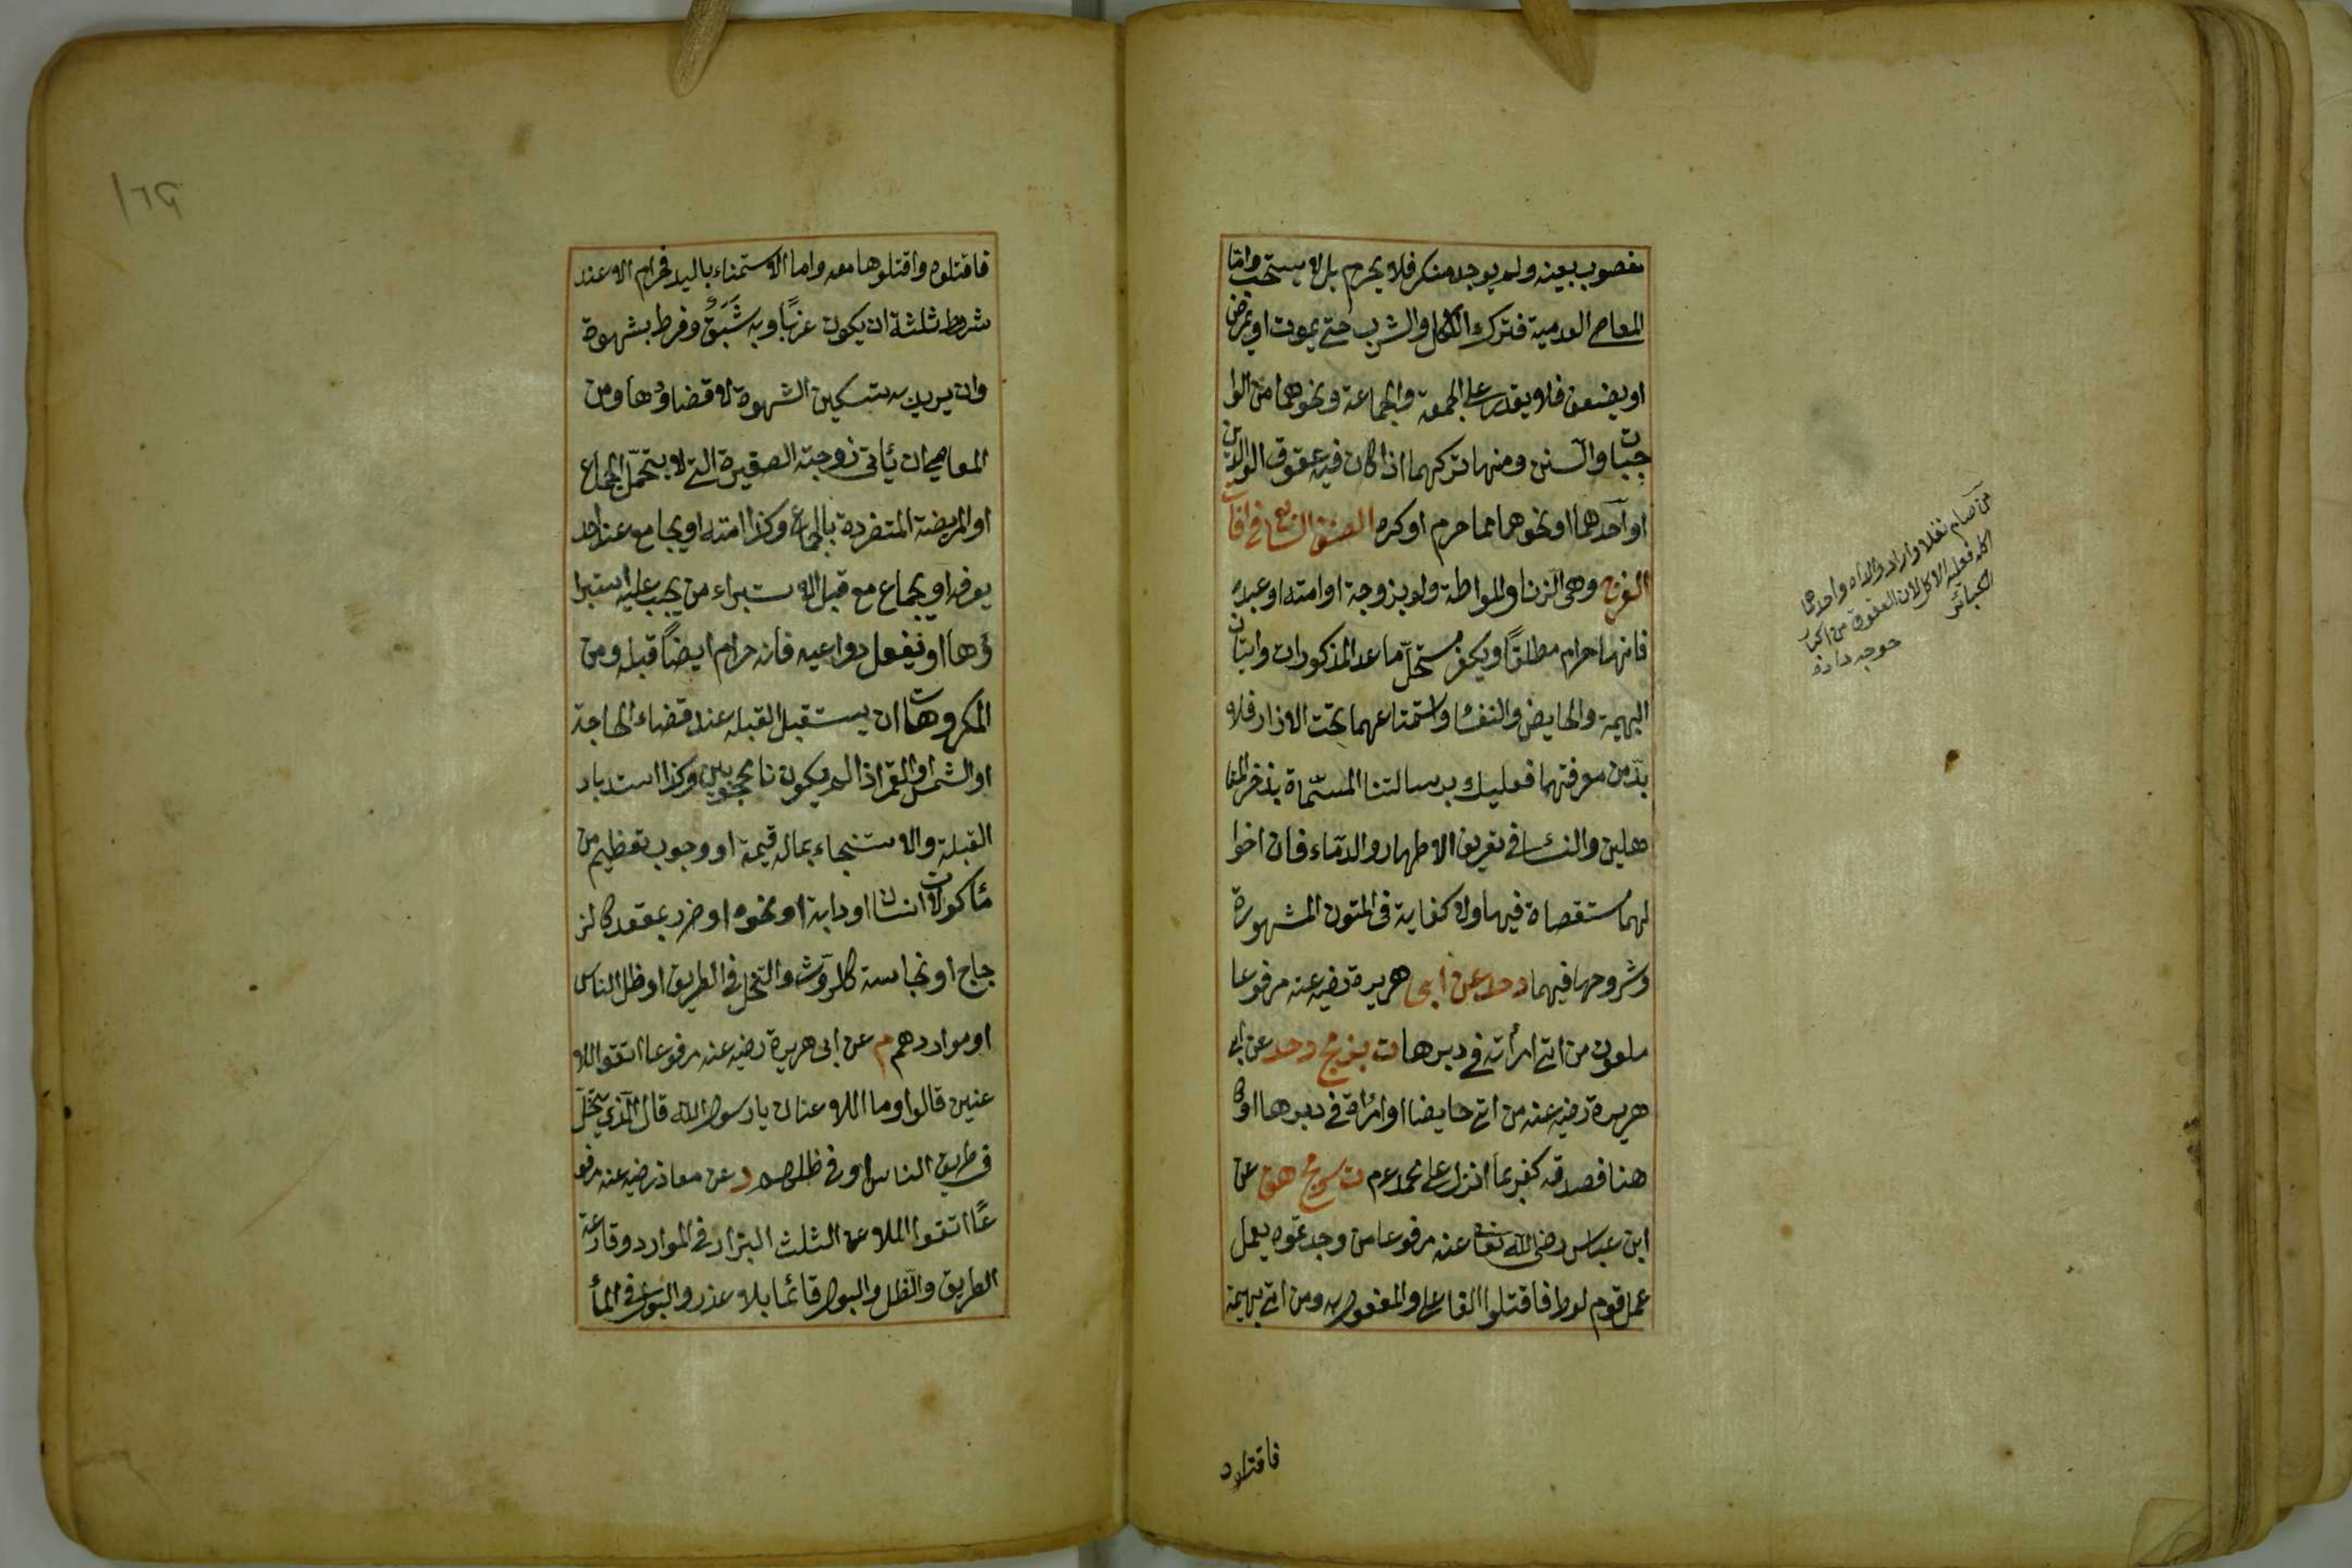 مغصوب بعينه ولم يوجد منكر فلا يحرم بل لا يستحب واما
المعاصى العدمية فترك الاكل والشرب حتى يموت او يمرض
او يضعف فلا يقدر على الجمعة والجماعة ونحوهما من الوا
جبات والسنن ومنها تركهما اذا كان فيه عقوق الوالدين
او احدهما او نحوهما مما حرم او كره الصنف السابع فى افات
الفرج وهى الزنا واللواطة ولو بزوجة او امته او عبده
فانها حرام مطلقًا ويكفر مستحلّ ما عدا المذكورات واتيان
البهيمة والحايض والنفسا واستمتاعهما تحت الازار فلا
بدّ من معرفتهما فعليك برسالتنا المسمّاة بذخر المتا
هلين والنسا فى تعريف الاطهار والدماء فان احوا
لهما مستقصاة فيها ولا كفاية فى المتون المشهورة
وشروحها فيهما دحد عن أبى هريرة رضيه عنه مرفوعا
ملعون من اتى امرأته فى دبرها ت بز مج دحد عن ابى
هريرة رضيه عنه من اتى حايضا او امرأة فى دبرها او كا
هنا فصدقه كفر بما انزل على محمد عم ت مج هق عن
ابن عباس رضى الله تعا عنه مرفوعا من وجدتموه يعمل
عمل قوم لوط فاقتلوا الفاعل والمفعول به ومن اتى بهيمة
من صام نفلا واراد والداه او احدهما
اكله فعليه الاكل لان العقوق من اكبر
الكبائر
خوجه زاده
فاقتلوه
فاقتلوه واقتلوها معه واما الاستمناء باليد فحرام الا عند
شروط ثلثة ان يكون عزبًا وبه شَبَقٌ وفرط شهوة
وان يريد به تسكين الشهوة لا قضاؤها ومن
المعاصى ان يأتى زوجته الصغيرة التى لا يتحمّل الجماع
او المريضة المتضررة بالجماع وكذا امته او يجامع عند احد
يعرفه او يجامع قبل الاستبراء من يجب عليه استبرا
ؤها او يفعل دواعيه فانه حرام ايضًا قبله ومن
المكروهات ان يستقبل القبلة عند قضاء الحاجة
او الشمس والقمر اذا لم يكونا محجوبين وكذا استدبار
القبلة والاستنجاء بماله قيمة او وجوب تعظيم من
مأكولات انسان او دابة او نحوه او ضرر بمقعد كالز
جاج او نجاسة كالروث والتخلى فى الطريق او ظل الناس
او مواردهم م عن ابى هريرة رضيه عنه مرفوعا اتقوا اللا
عنين قالوا وما اللاعنان يا رسول الله قال الذى يتخلّى
فى طريق الناس او فى ظلهم د عن معاذ رضيه عنه مرفو
عًا اتقوا الملاعن الثلث البراز فى الموارد وقارعة
الطريق والظل والبول قائما بلا عذر والبول فى الما